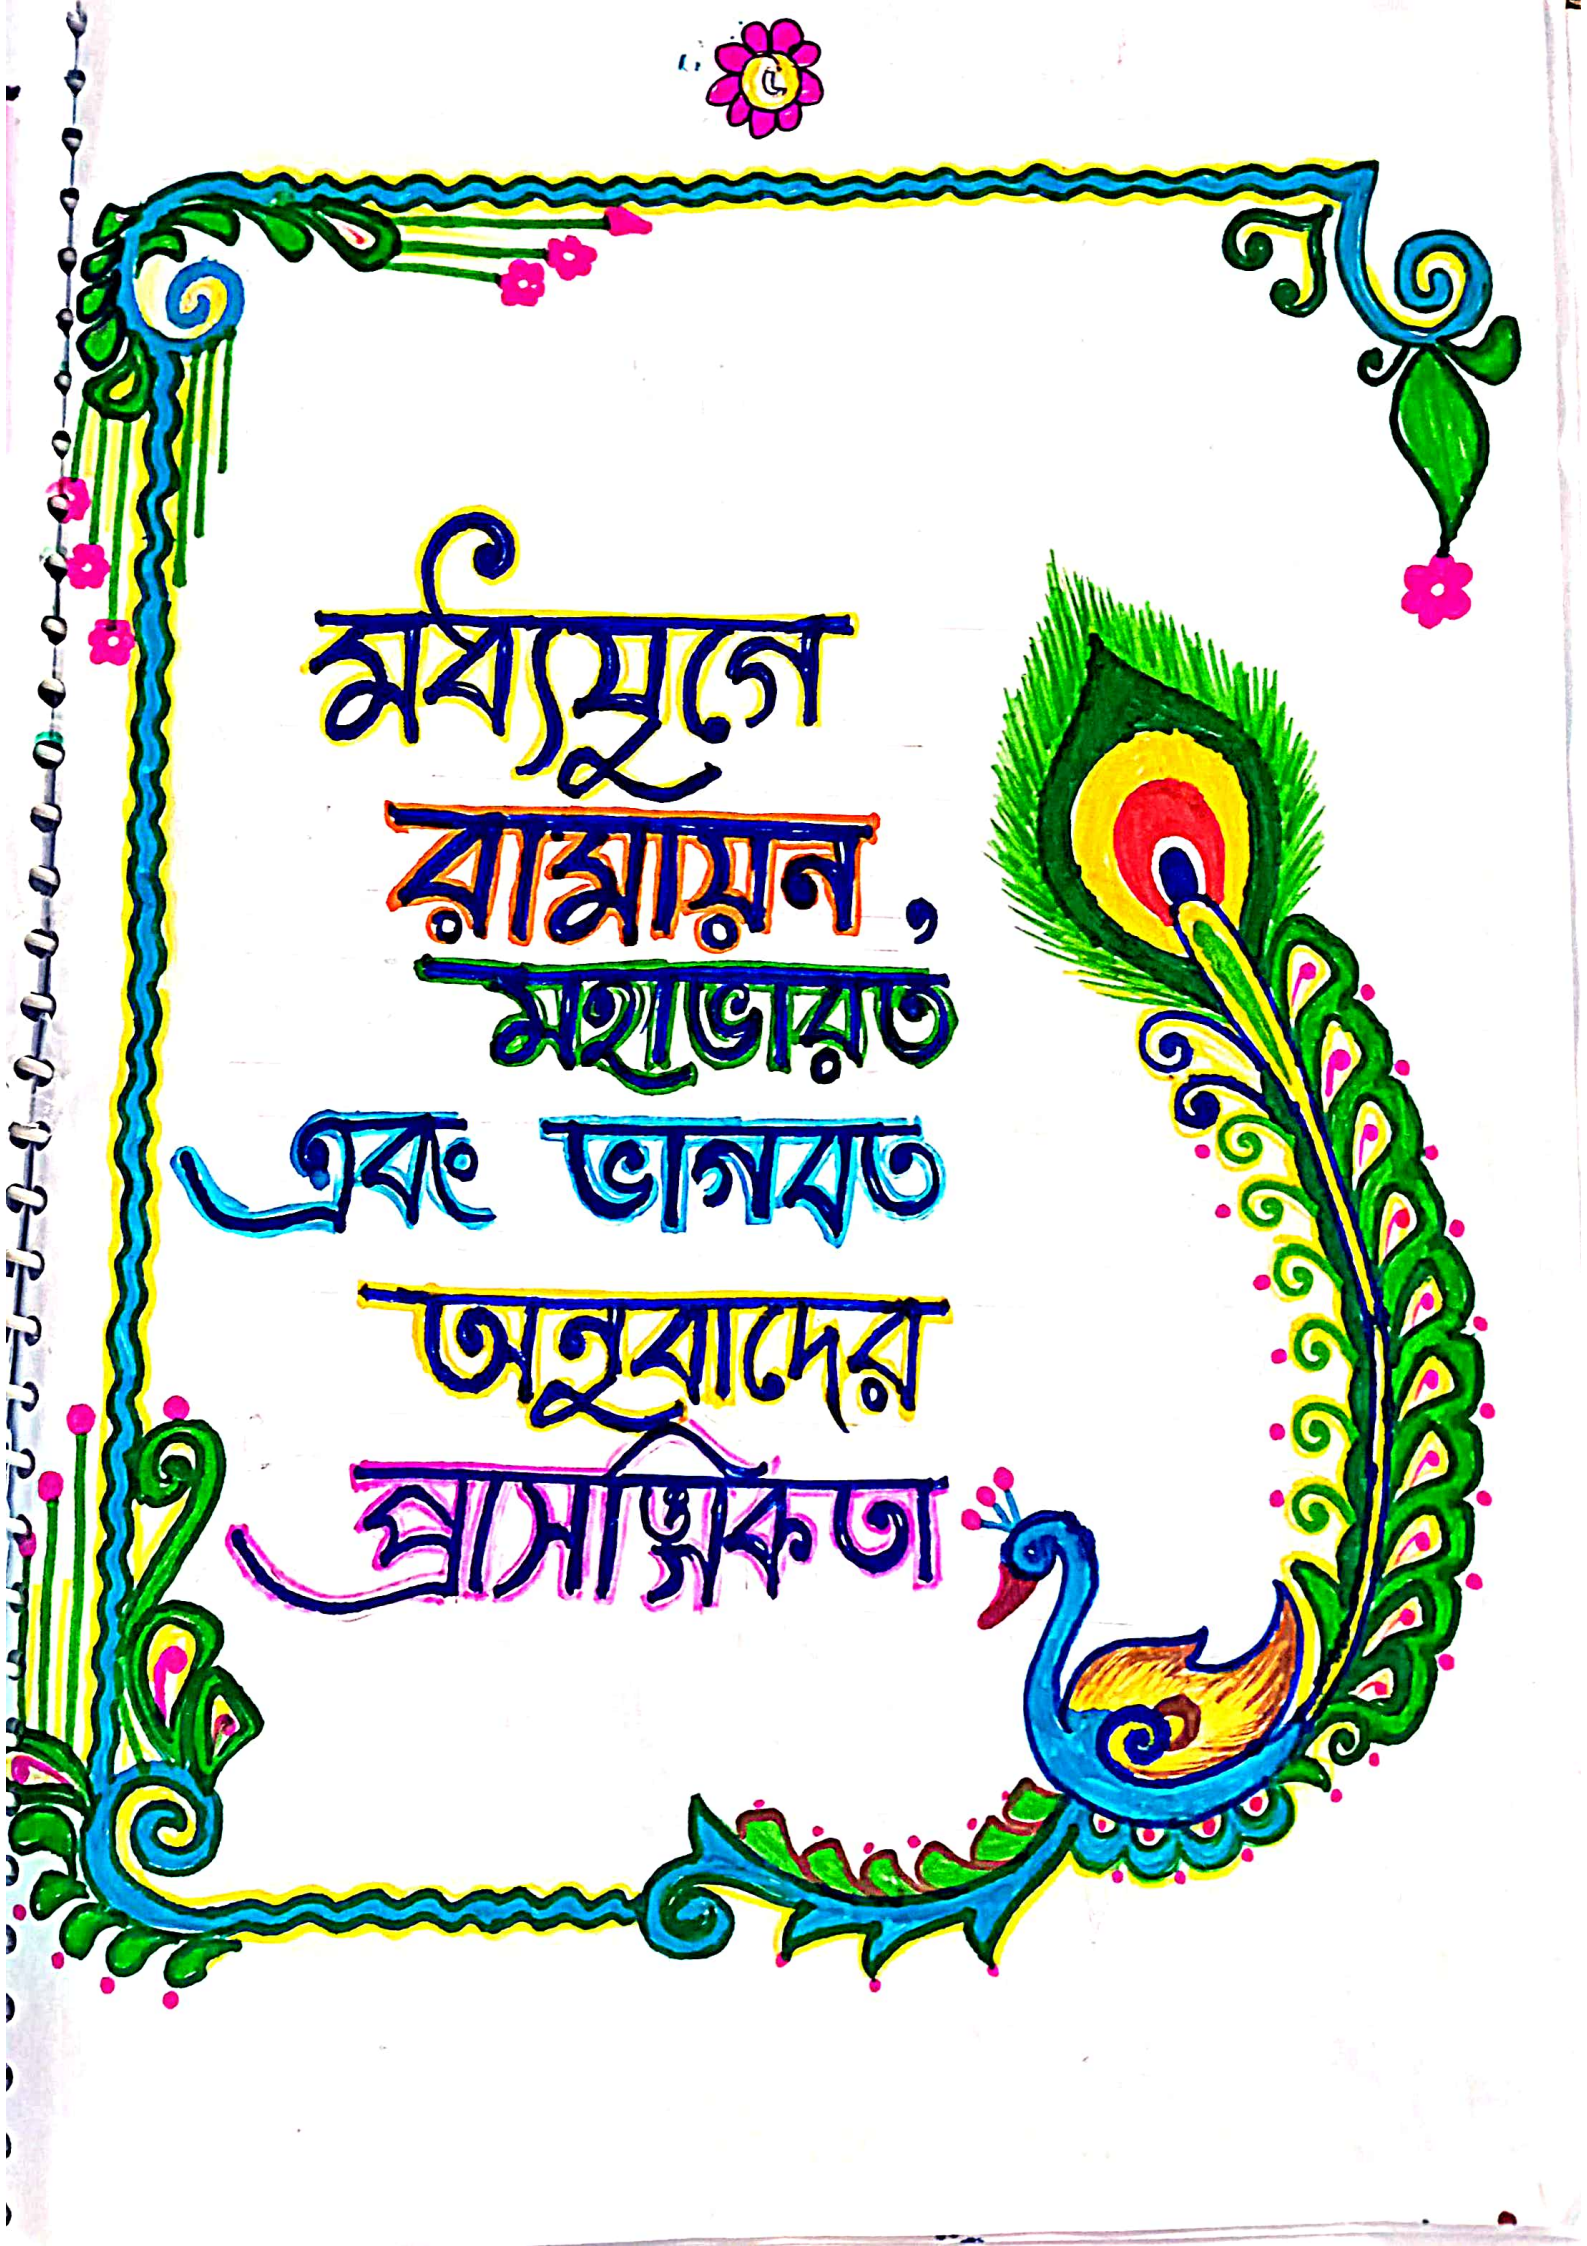 মধ্যযুগে
রামায়ন,
মহাভারত
এবং ভাগবত
অনুবাদের
প্রাসঙ্গিকতা